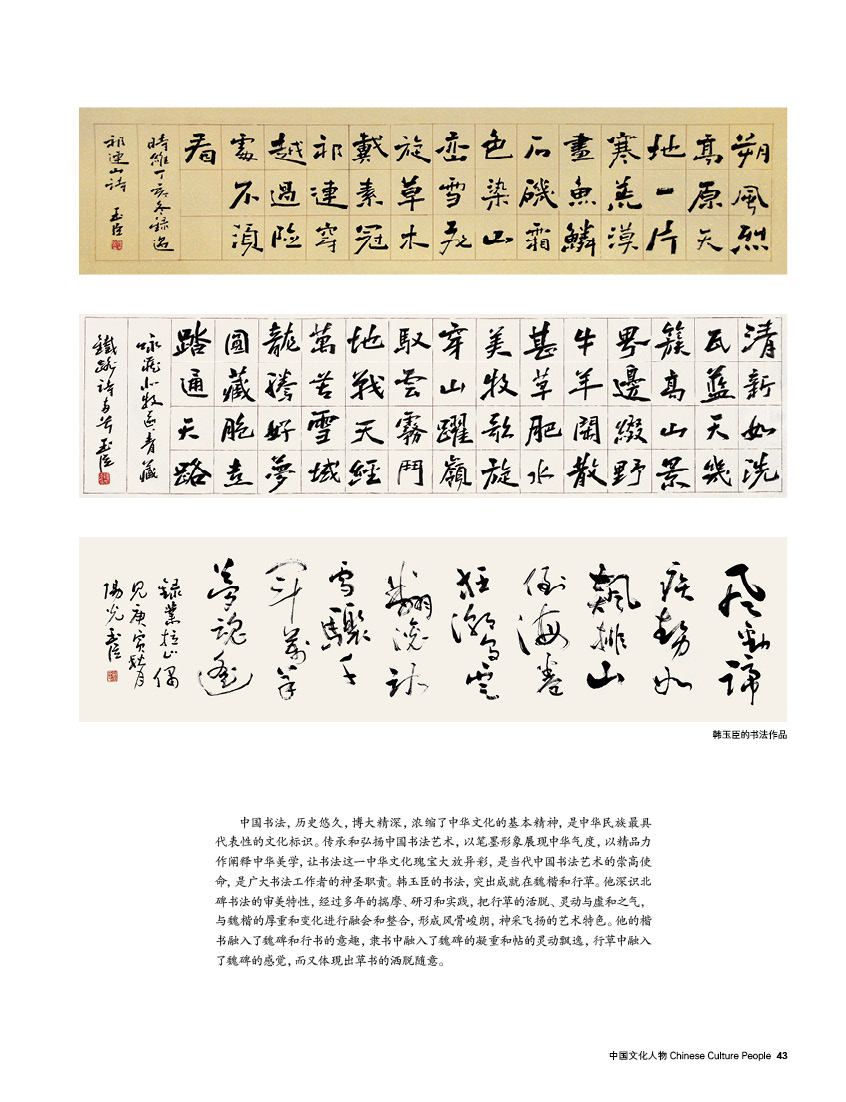 朔風烈
高原天
地一片
寒荒漠
畫魚鱗
石磯霜
色染山
峦雪飛
旋草木
戴素冠
祁連穿
越過险
處不須
看
時維丁亥冬録過
祁連山詩 玉臣
清新如洗
瓦藍天幾
簇高山景
界邊綴野
牛羊閑散
甚草肥水
美牧歌旋
穿山躍嶺
馭雲霧鬥
地戰天經
萬苦雪域
龍騰好夢
圓藏胞走
踏通天路
咏 小牧過青藏
鐵路詩 玉臣
風
疾勁如
飆排山
倒海卷
狂潮烏雲
翻滚
雪驟千
萬
夢魂
録業拉山偶
見庚寅秋月
陽光玉臣
韩玉臣的书法作品
中国书法，历史悠久，博大精深，浓缩了中华文化的基本精神，是中华民族最具
代表性的文化标识。传承和弘扬中国书法艺术，以笔墨形象展现中华气度，以精品力
作阐释中华美学，让书法这一中华文化瑰宝大放异彩，是当代中国书法艺术的崇高使
命，是广大书法工作者的神圣职责。韩玉臣的书法，突出成就在魏楷和行草。他深识北
碑书法的审美特性，经过多年的揣摩、研习和实践，把行草的活脱、灵动与虚和之气，
与魏楷的厚重和变化进行融会和整合，形成风骨峻朗，神采飞扬的艺术特色。他的楷
书融入了魏碑和行书的意趣，隶书中融入了魏碑的凝重和帖的灵动飘逸，行草中融入
了魏碑的感觉，而又体现出草书的洒脱随意。
中国文化人物 Chinese Culture People 43